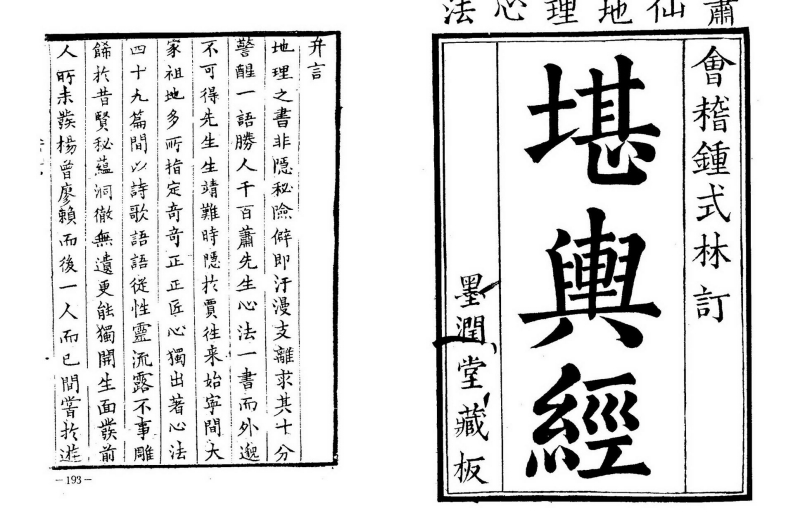 蕭仙地理心法
會稽鍾式林訂
堪輿經
墨潤堂藏板
弁言
地理之書非隱秘險僻即汗漫支離求其十分
警醒一語勝人千百蕭先生心法一書而外邈
不可得先生生靖難時隱扵賈徃来始寧間大
家祖地多所指定奇奇正正匠心獨出著心法
四十九篇間以詩歌語語從性靈流露不事雕
餙扵昔賢秘蘊洞徹無遺更能獨開生面發前
人所未發楊曾廖賴而後一人而已間嘗扵遊
—193—